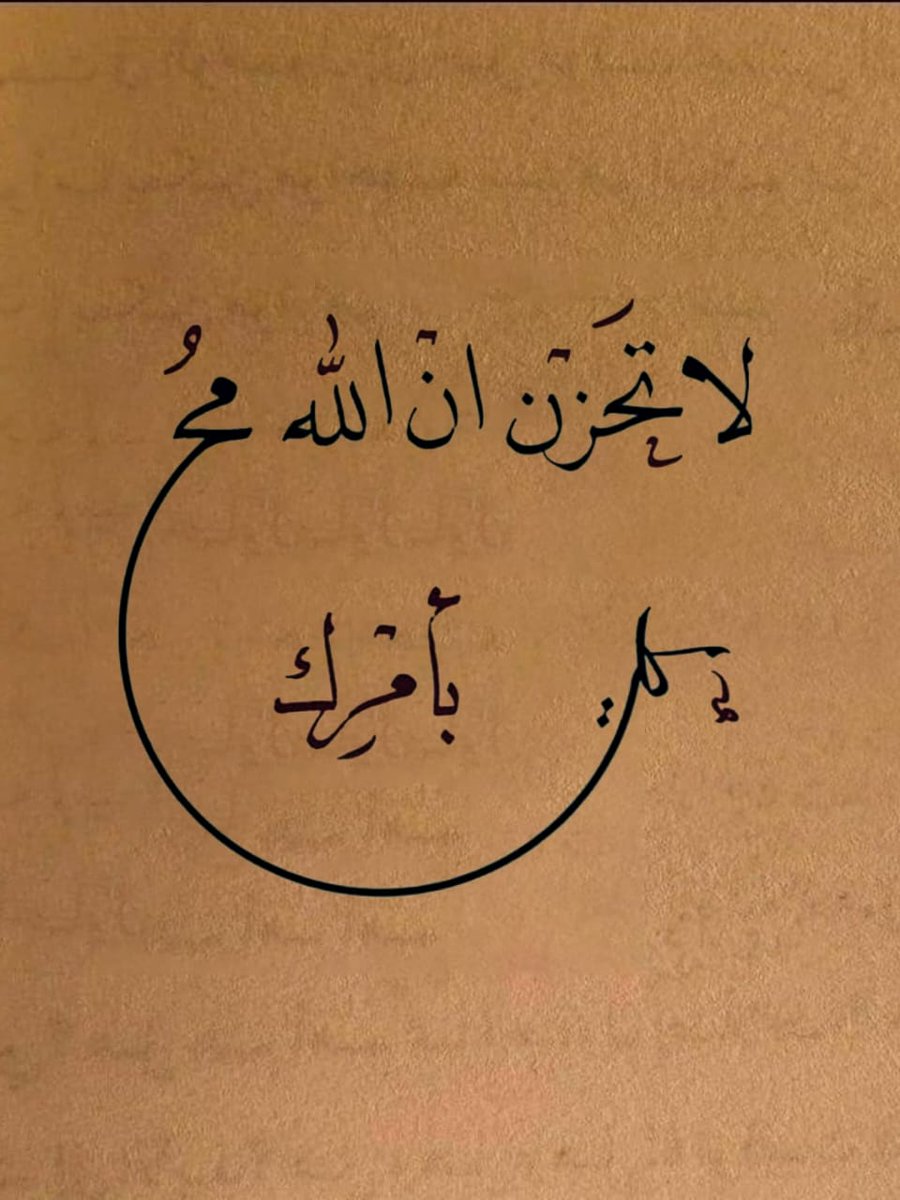 لا تَحزنْ انْ اللّٰه مُحيط
بأمْرِك